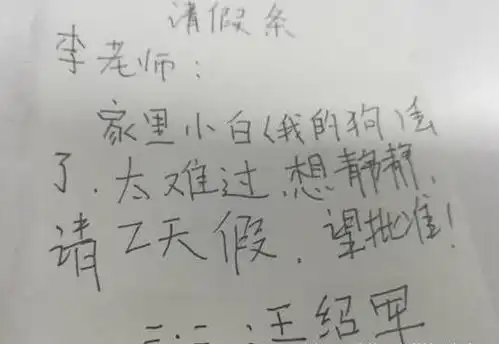 请假条
李老师：
家里小白(我的狗)丢
了.太难过.想静静.
请2天假.望批准!
王绍军